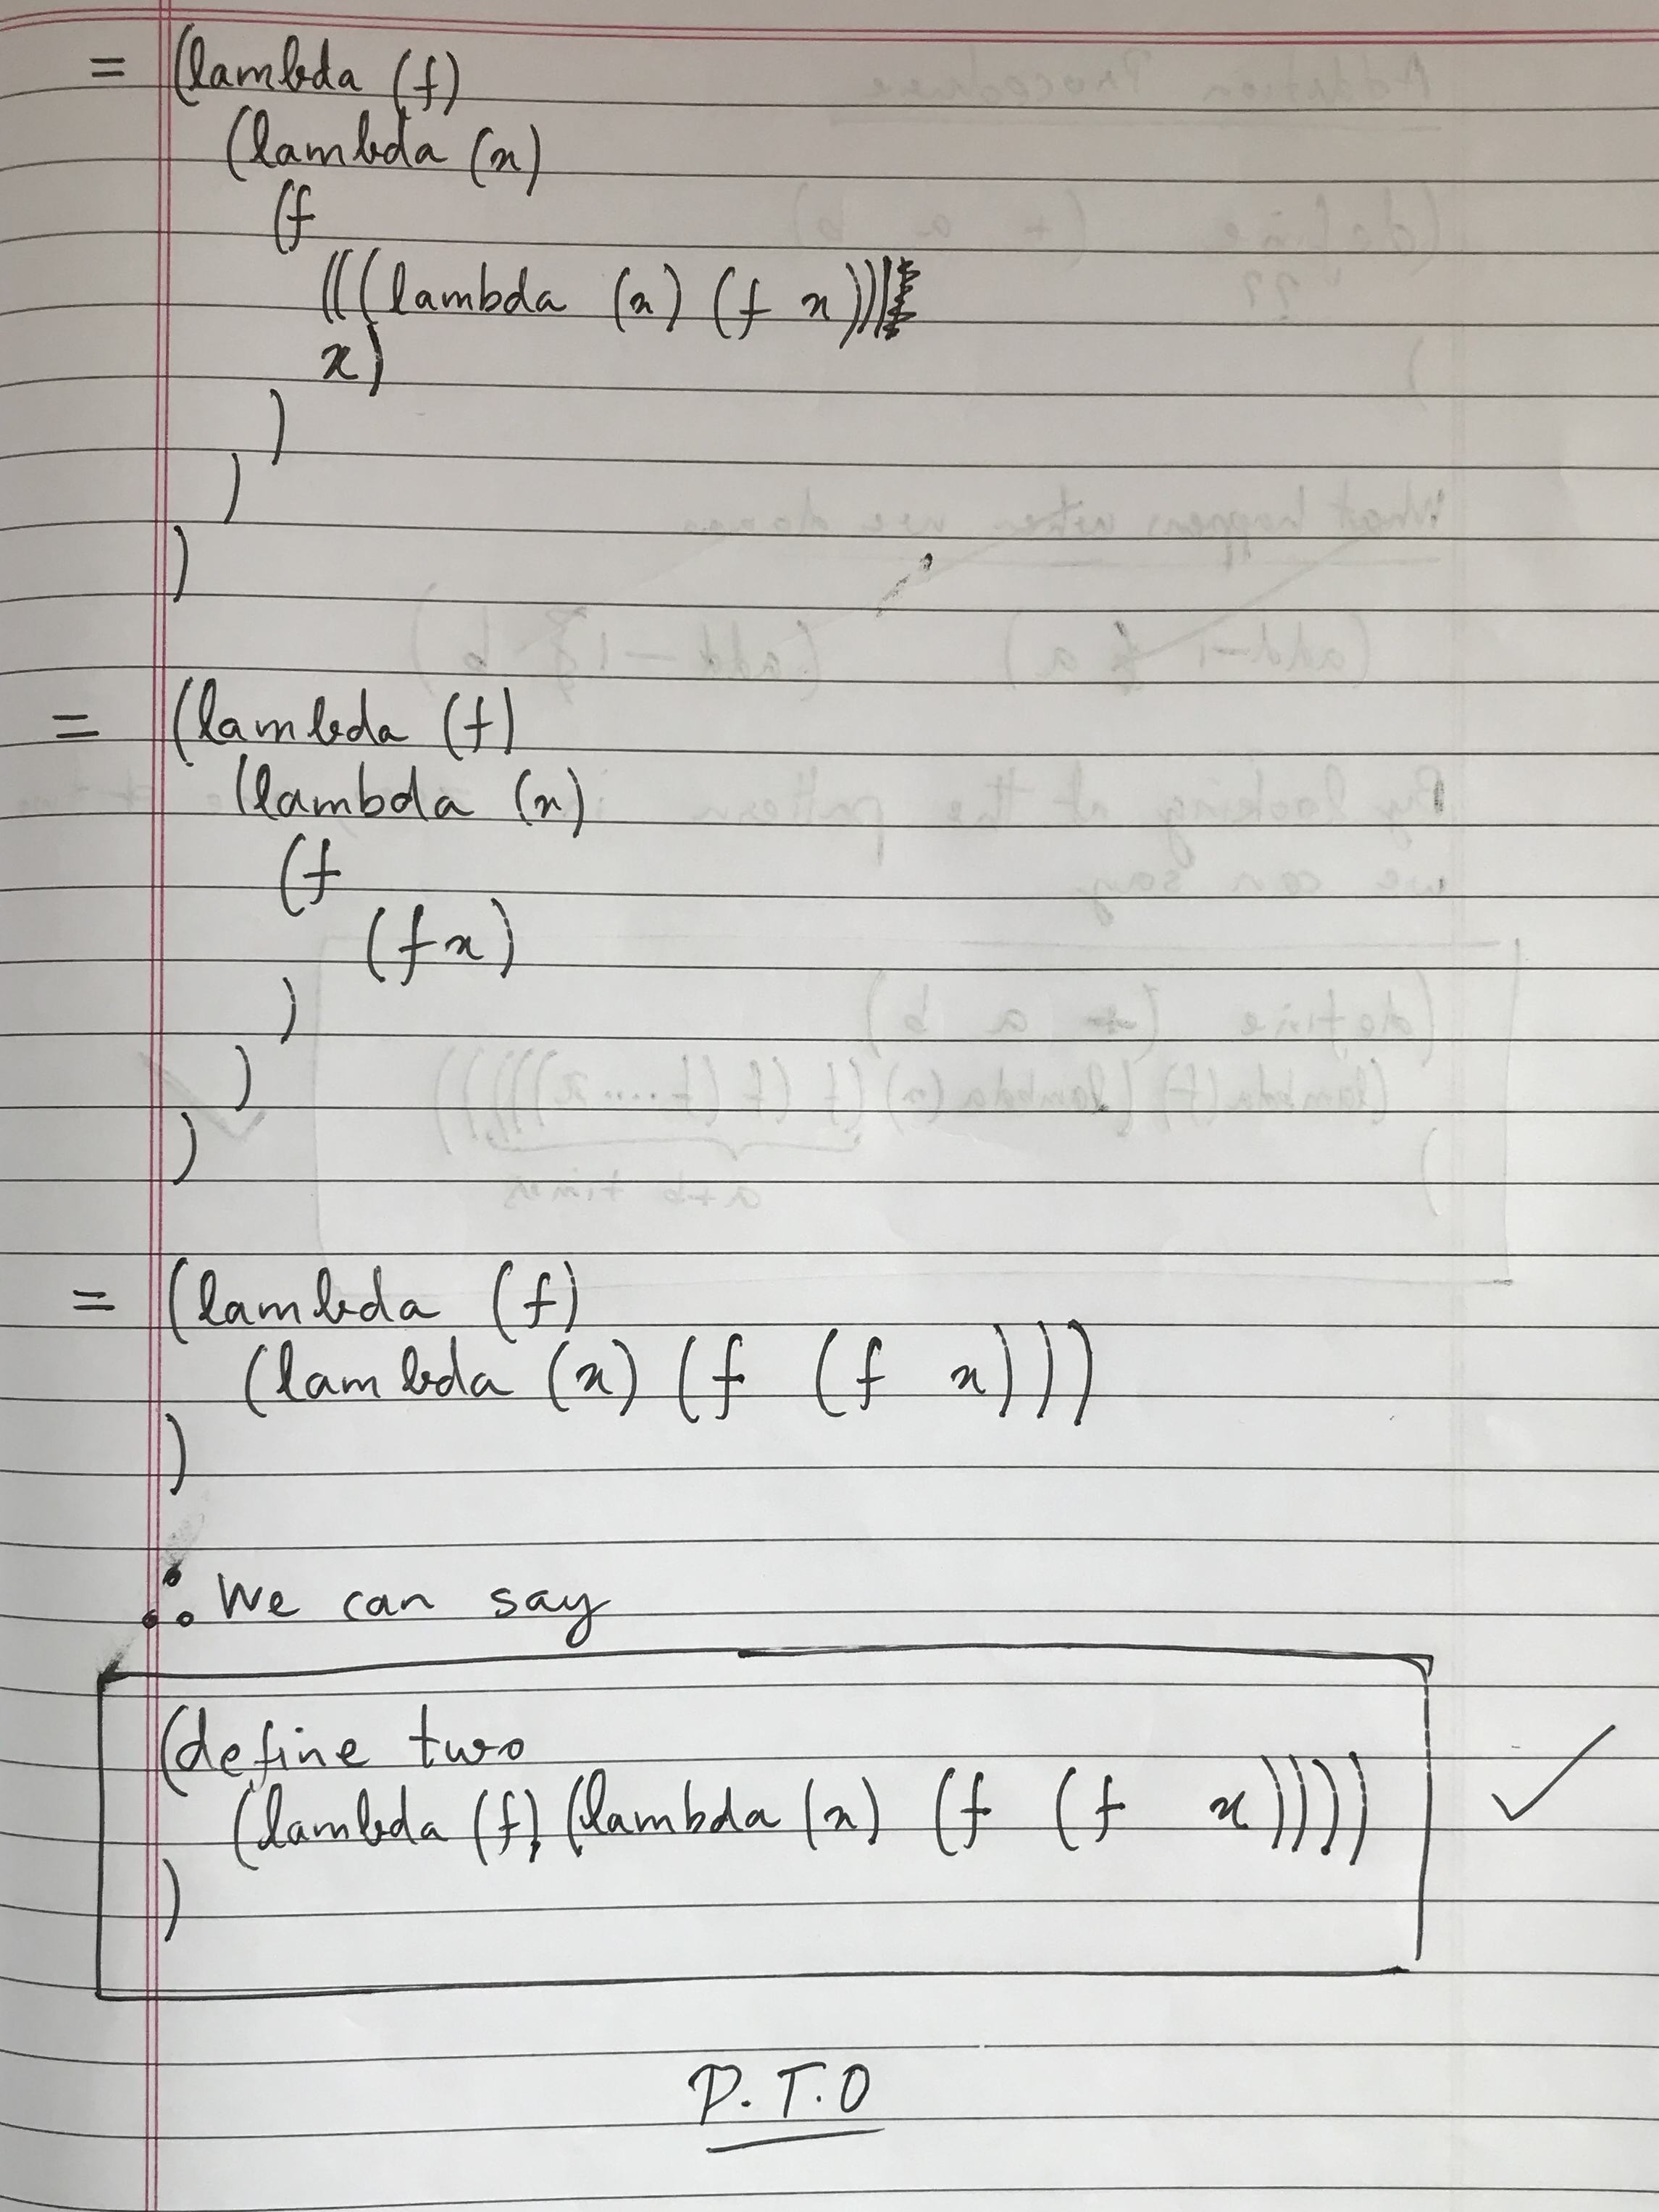 = (lambda (f)
(lambda (x)
(f
(((lambda (x) (f x)))
x)
)
)
)
= (lambda (f)
(lambda (x)
(f
(f x)
)
)
)
= (lambda (f)
(lambda (x) (f (f x)))
)
∴ We can say
(define two
(lambda (f) (lambda (x) (f (f x))))
)
P.T.O